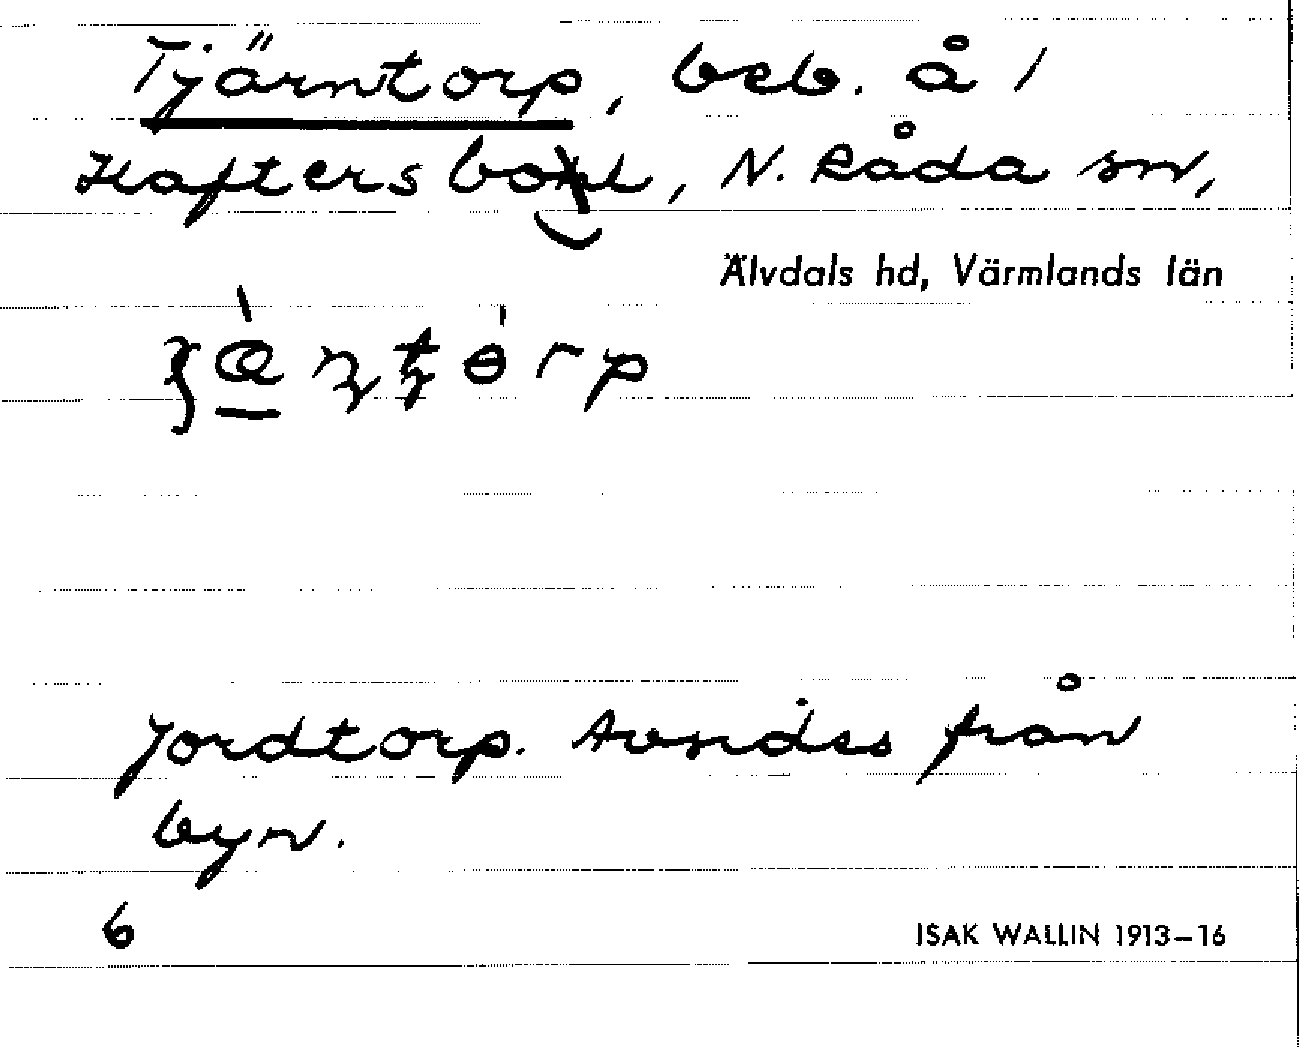 Tjärntorp, beb. å 1
Haftersbol, N. Råda sn,
Älvdals hd, Värmlands län
Jordtorp. Avsides från
byn.
6
ISAK WALLIN 1913–16